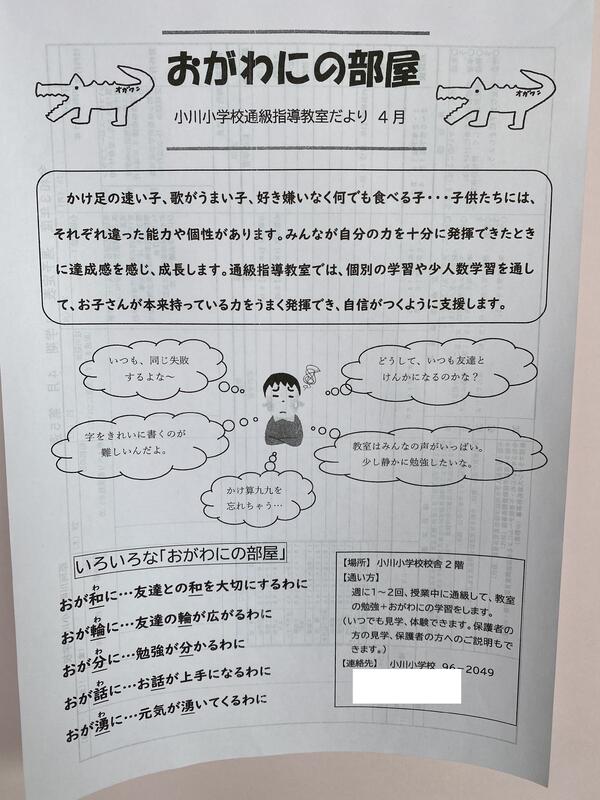 おがわにの部屋
オガワン
オガワン
小川小学校通級指導教室だより 4月
かけ足の速い子、歌がうまい子、好き嫌いなく何でも食べる子・・・子供たちには、
それぞれ違った能力や個性があります。みんなが自分の力を十分に発揮できたとき
に達成感を感じ、成長します。通級指導教室では、個別の学習や少人数学習を通し
て、お子さんが本来持っている力をうまく発揮でき、自信がつくように支援します。
いつも、同じ失敗
するよな～
どうして、いつも友達と
けんかになるのかな？
字をきれいに書くのが
難しいんだよ。
教室はみんなの声がいっぱい。
少し静かに勉強したいな。
かけ算九九を
忘れちゃう…
いろいろな「おがわにの部屋」
おが和に…友達との和を大切にするわに
おが輪に…友達の輪が広がるわに
おが分に…勉強が分かるわに
おが話に…お話が上手になるわに
おが湧に…元気が湧いてくるわに
【場所】 小川小学校校舎2階
【通い方】
週に1～2回、授業中に通級して、教室
の勉強+おがわにの学習をします。
（いつでも見学、体験できます。保護者の
方の見学、保護者の方へのご説明もで
きます。）
【連絡先】 小川小学校 96-2049